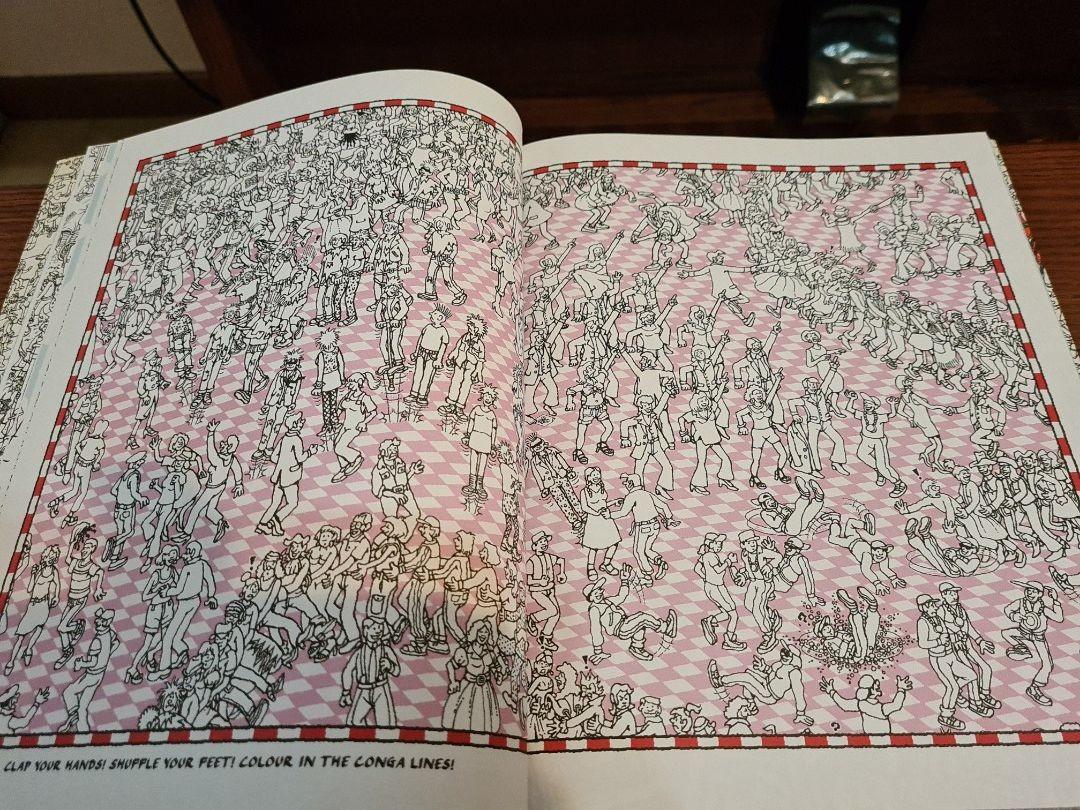 CLAP YOUR HANDS! SHUFFLE YOUR FEET! COLOUR IN THE CONGA LINES!